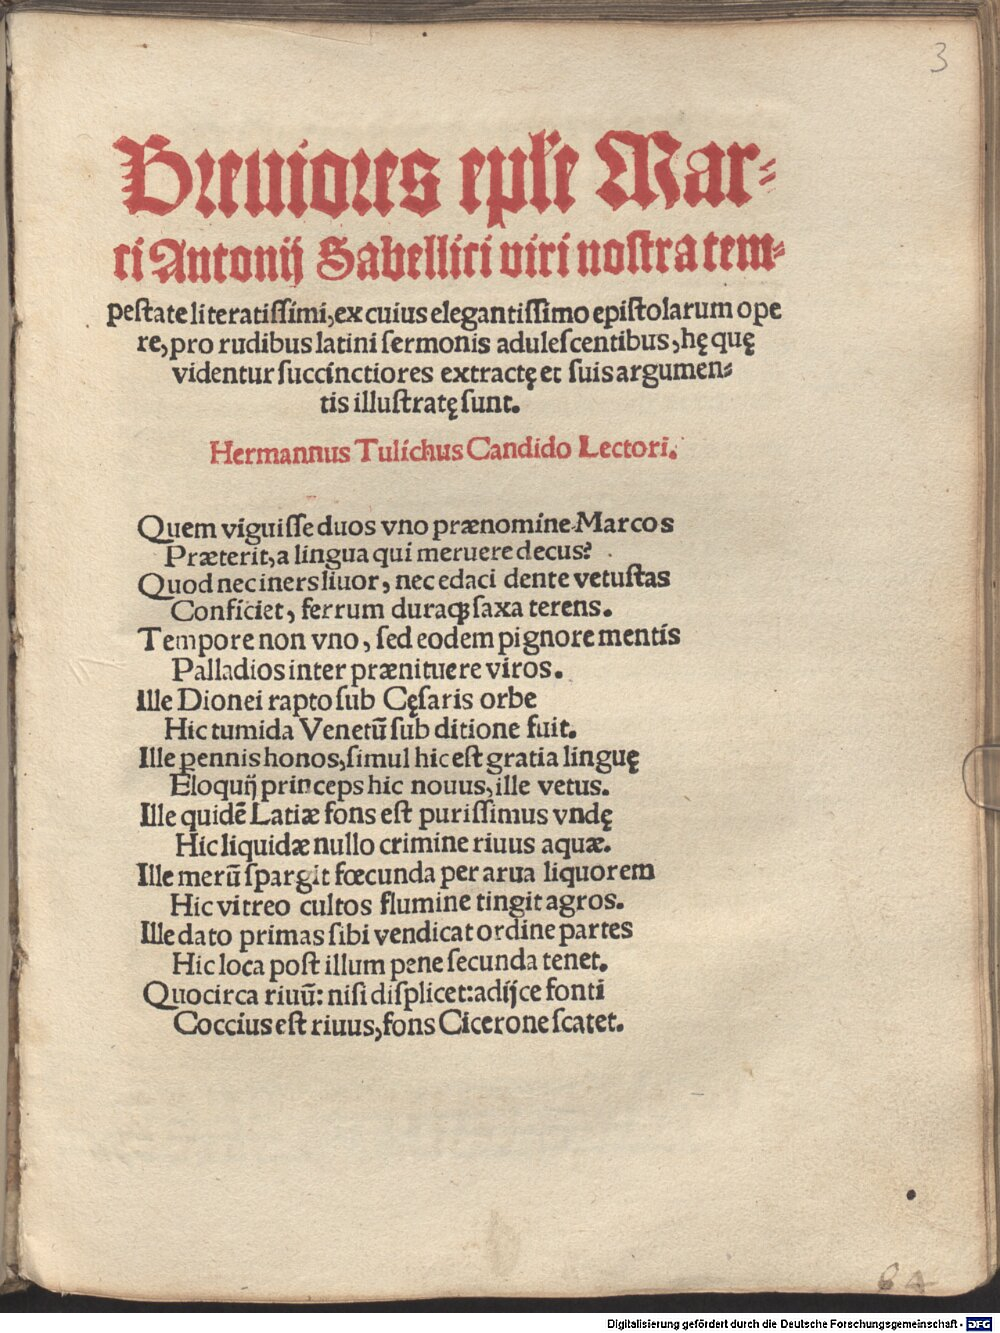 3
Breuiores epl'e Mar-
ci Antonij Sabellici viri nostra tem-
pestate literatissimi, ex cuius elegantissimo epistolarum ope
re, pro rudibus latini sermonis adulescentibus, hę quę
videntur succinctiores extractę et suis argumen-
tis illustratę sunt.
Hermannus Tulichus Candido Lectori.
Quem viguisse duos vno prænomine Marcos
Præterit, a lingua qui meruere decus?
Quod nec iners liuor, nec edaci dente vetustas
Conficiet, ferrum duraqꝫ saxa terens.
Tempore non vno, sed eodem pignore mentis
Palladios inter prænituere viros.
Ille Dionei rapto sub Cęsaris orbe
Hic tumida Venetū sub ditione fuit.
Ille pennis honos, simul hic est gratia linguę
Eloquij princeps hic nouus, ille vetus.
Ille quidē Latiæ fons est purissimus vndę
Hic liquidæ nullo crimine riuus aquæ.
Ille merū spargit fœcunda per arua liquorem
Hic vitreo cultos flumine tingit agros.
Ille dato primas sibi vendicat ordine partes
Hic loca post illum pene secunda tenet.
Quocirca riuū: nisi displicet: adijce fonti
Coccius est riuus, fons Cicerone scatet.
Digitalisierung gefördert durch die Deutsche Forschungsgemeinschaft - DFG